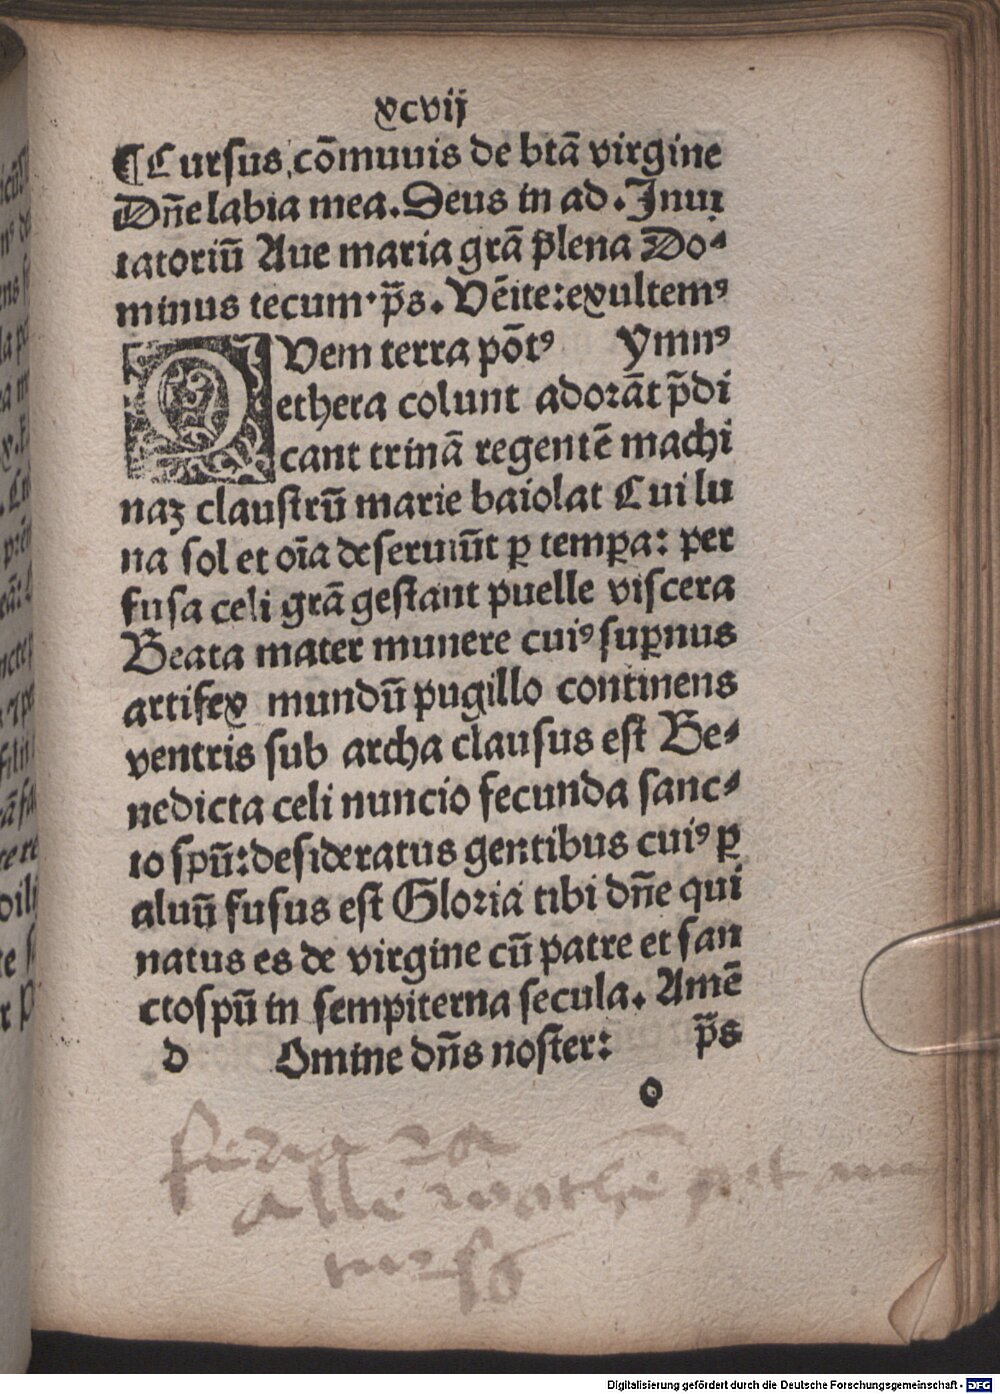 xcvij
¶Cursus cōmuuis de btā virgine
Dn̄e labia mea. Deus in ad. Inui
tatoriū Aue maria grā plena Do⸗
minus tecum·ps̄. Vēite:exultemꝰ
QVem terra pōtꝰ Ymnꝰ
ethera colunt adorāt p̄di
cant trinā regentē machi
naꝫ claustrū marie baiolat Cui lu
na sol et oīa deseruiūt ꝑ tempꝑa: per
fusa celi grā gestant puelle viscera
Beata mater munere cuiꝰ suꝑnus
artifex mundū pugillo continens
ventris sub archa clausus est Be⸗
nedicta celi nuncio fecunda sanc⸗
to spū:desideratus gentibus cuiꝰ ꝑ
aluū fusus est Gloria tibi dn̄e qui
natus es de virgine cū patre et san
cto spū in sempiterna secula. Amē
D Omine dn̄s noster: ps̄
o
feria 2a
alle